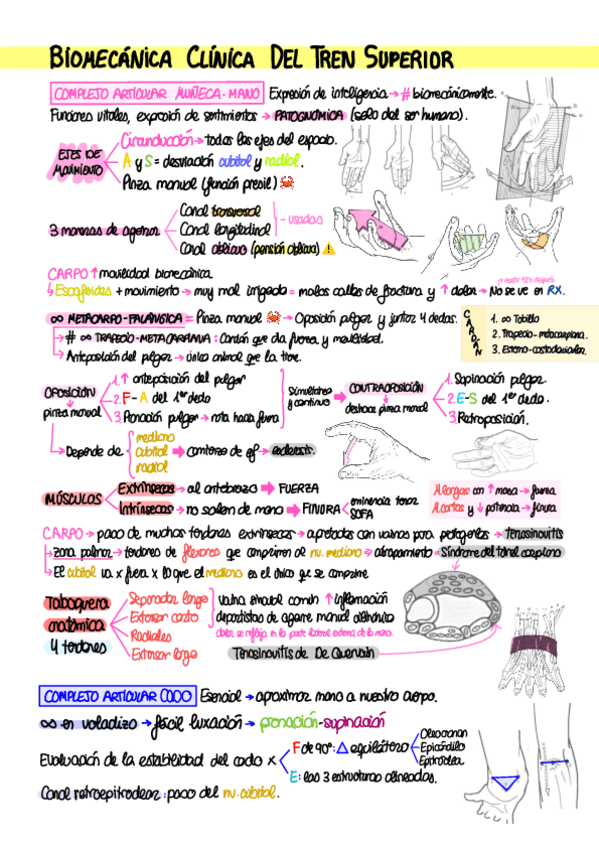 BIOMECÁNICA CLÍNICA DEL TREN SUPERIOR
COMPLEJO ARTICULAR MUÑECA-MANO Expresión de inteligencia → # biomecánicamente.
Funciones vitales, expresión de sentimientos → PATOGNÓMICA (sello del ser humano).
EJES DE MOVIMIENTO
Circunducción → todos los ejes del espacio.
A y S = desviación cubital y radial.
Pinza manual (función presil)
3 maneras de agarrar
Canal transversal
Canal longitudinal
- usadas
Canal oblicuo (pensión oblicua)
CARPO ↑ movilidad biomecánica
↳ Escafoides + movimiento → muy mal irrigado = malos callos de fractura y ↑ dolor → No se ve en RX.
∞ METACARPO-FALÁNGICA = Pinza manual → Oposición pulgar y juntar 4 dedos.
# ∞ TRAPECIO-METACARPIANA: Cardán que da fuerza y movilidad.
Anteposición del pulgar → único animal que la tiene.
CARDAN
1. ∞ Tobillo
2. Trapecio-metacarpiana.
3. Esterno-costoclavicular.
OPOSICIÓN
↓
pinza manual
1. ↑ anteposición del pulgar
2. F - A del 1er dedo
3. Pronación pulgar → rota hacia fuera
Simultáneo y continuo
CONTRAOPOSICIÓN
↓
deshace pinza manual
1. Supinación pulgar.
2. E-S del 1er dedo.
3. Retroposición.
Depende de
mediano
cubital
radial
→ comienzo de → esclerosis.
MÚSCULOS
Extrínsecos → al antebrazo → FUERZA
Intrínsecos → no salen de mano → FINURA
eminencia tenar
SOFA
↑ largos con ↑ masa → fuerza
↑ cortos y ↓ potencia → finura
CARPO → paso de muchos tendones extrínsecos → apretados con vainas para protegerlos → Tenosinovitis
zona palmar → tendones de flexores que comprimen al nu. mediano → atrapamiento = Síndrome del túnel carpiano
El cubital va x fuera x lo que el mediano es el único que se comprime
Tabaquera anatómica
4 tendones
Separador largo
Extensor corto
Radiales
Extensor largo
Vaina sinovial común ↑ inflamación
deportistas de agarre manual
dolor se refleja en la parte lateral externa de la mano.
Tenosinovitis de De Quervain
COMPLEJO ARTICULAR CODO Esencial → aproximar mano a nuestro cuerpo.
∞ en voladizo → fácil luxación → pronación-supinación
Evaluación de la estabilidad del codo x
F de 90º: △ equilátero
Olecranon
Epicóndilo
Epitróclea
E: las 3 estructuras alineadas.
Canal retroepitroclear: paso del nu. cubital.